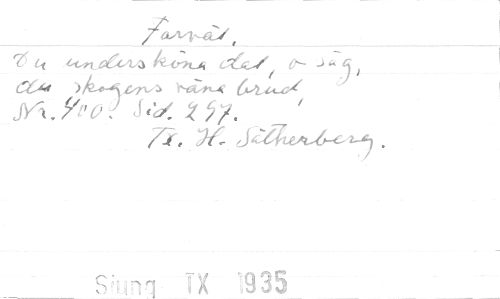 Farväl.
Du undersköna dal, o säg,
du skogens väna brud,
Nr. 400. Sid. 297.
Tx. H. Sätherberg.
Sjung TX 1935